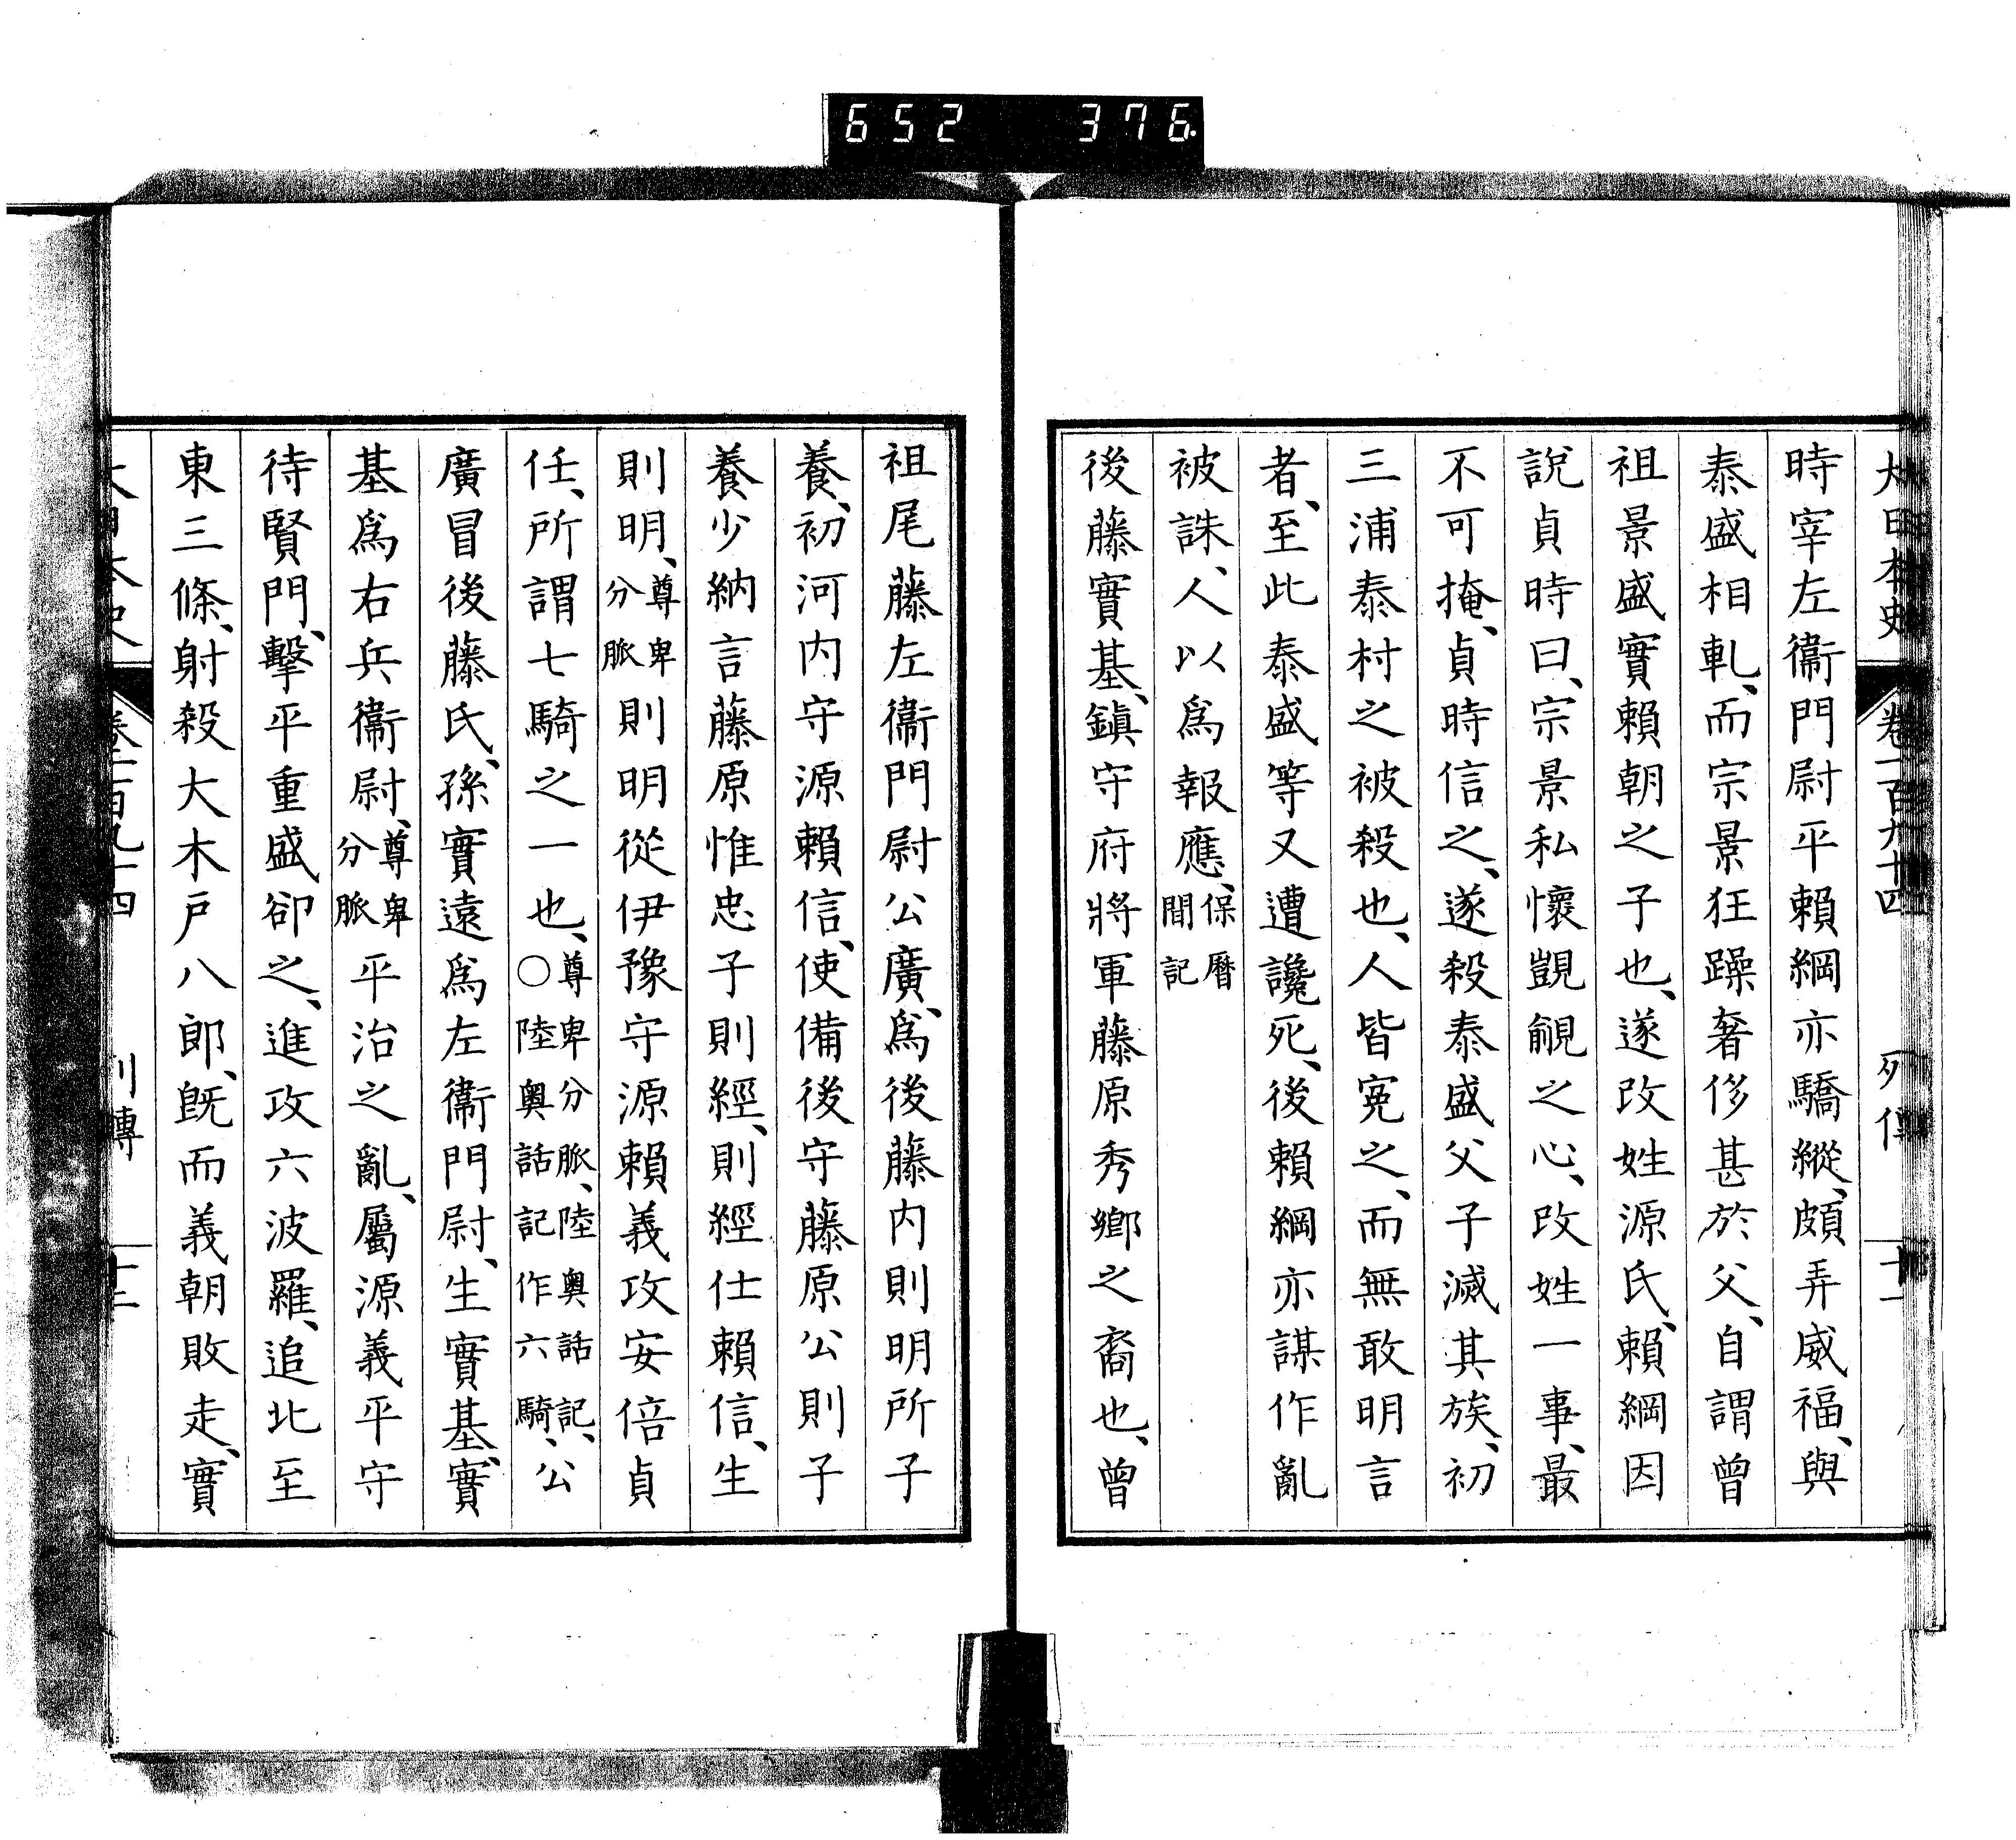 652 376.
大日本史 卷一百九十四 列傳 十一
時宰左衞門尉平賴綱亦驕縱、頗弄威福、與
泰盛相軋、而宗景狂躁奢侈甚於父、自謂曾
祖景盛實賴朝之子也、遂改姓源氏、賴綱因
說貞時曰、宗景私懷覬覦之心、改姓一事、最
不可掩、貞時信之、遂殺泰盛父子滅其族、初
三浦泰村之被殺也、人皆寃之、而無敢明言
者、至此泰盛等又遭讒死、後賴綱亦謀作亂
被誅、人以爲報應、保曆間記
後藤實基、鎭守府將軍藤原秀鄉之裔也、曾
祖尾藤左衞門尉公廣、爲後藤內則明所子
養、初河內守源賴信、使備後守藤原公則子
養少納言藤原惟忠子則經、則經仕賴信、生
則明、尊卑分脈則明從伊豫守源賴義攻安倍貞
任、所謂七騎之一也、尊卑分脈、陸奧話記、○陸奧話記作六騎、公
廣冒後藤氏、孫實遠爲左衞門尉、生實基、實
基爲右兵衞尉、尊卑分脈平治之亂、屬源義平守
待賢門、擊平重盛卻之、進攻六波羅、追北至
東三條、射殺大木戶八郎、既而義朝敗走、實
大日本史 卷一百九十四 列傳 十二